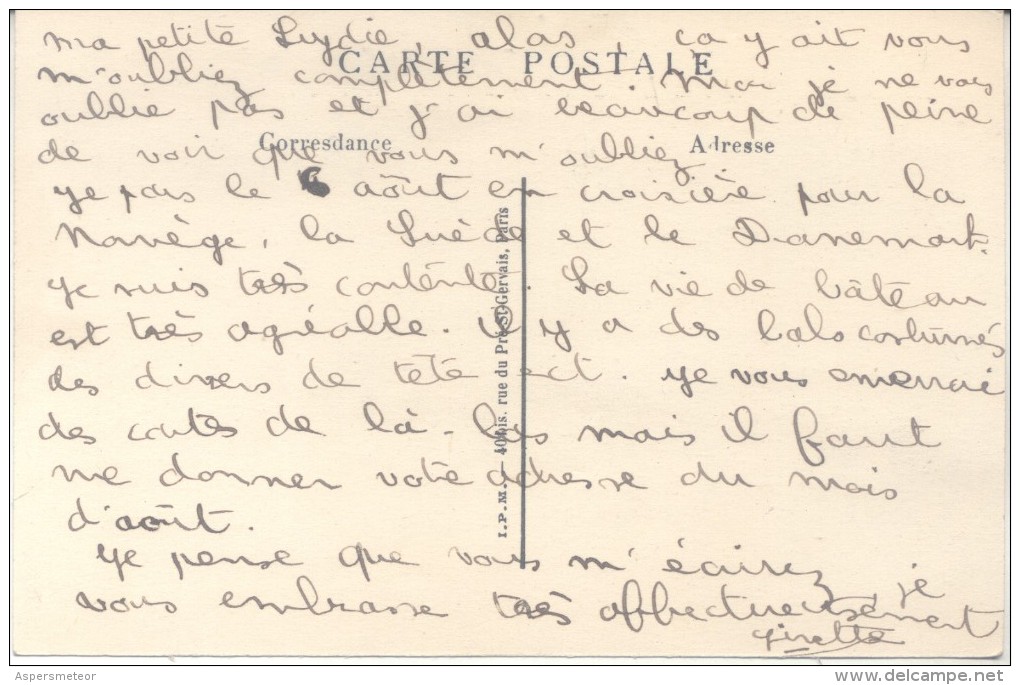 ma petite Lydie, alors, ça y ait vous
CARTE POSTALE
m'oubliez complètement. Moi je ne vous
oublie pas et j'ai beaucoup de peine
Corresdance
Adresse
de voir que vous m'oubliez
je pars le 6 août en croisière pour la
Norvège, la Suède et le Danemark.
Je suis très contente. La vie de bâteau
est très agréable. il y a des bals costumés
des divers de tête ect. je vous enverrai
des cartes de là-bas mais il faut
me donner votre adresse du mois
d'août.
Je pense que vous m'écrirez, je
vous embrasse très affectueusement
Ginette
I.P.M. — 40bis. rue du Pré-St-Gervais, Paris
Aspersmeteor
www.delcampe.net